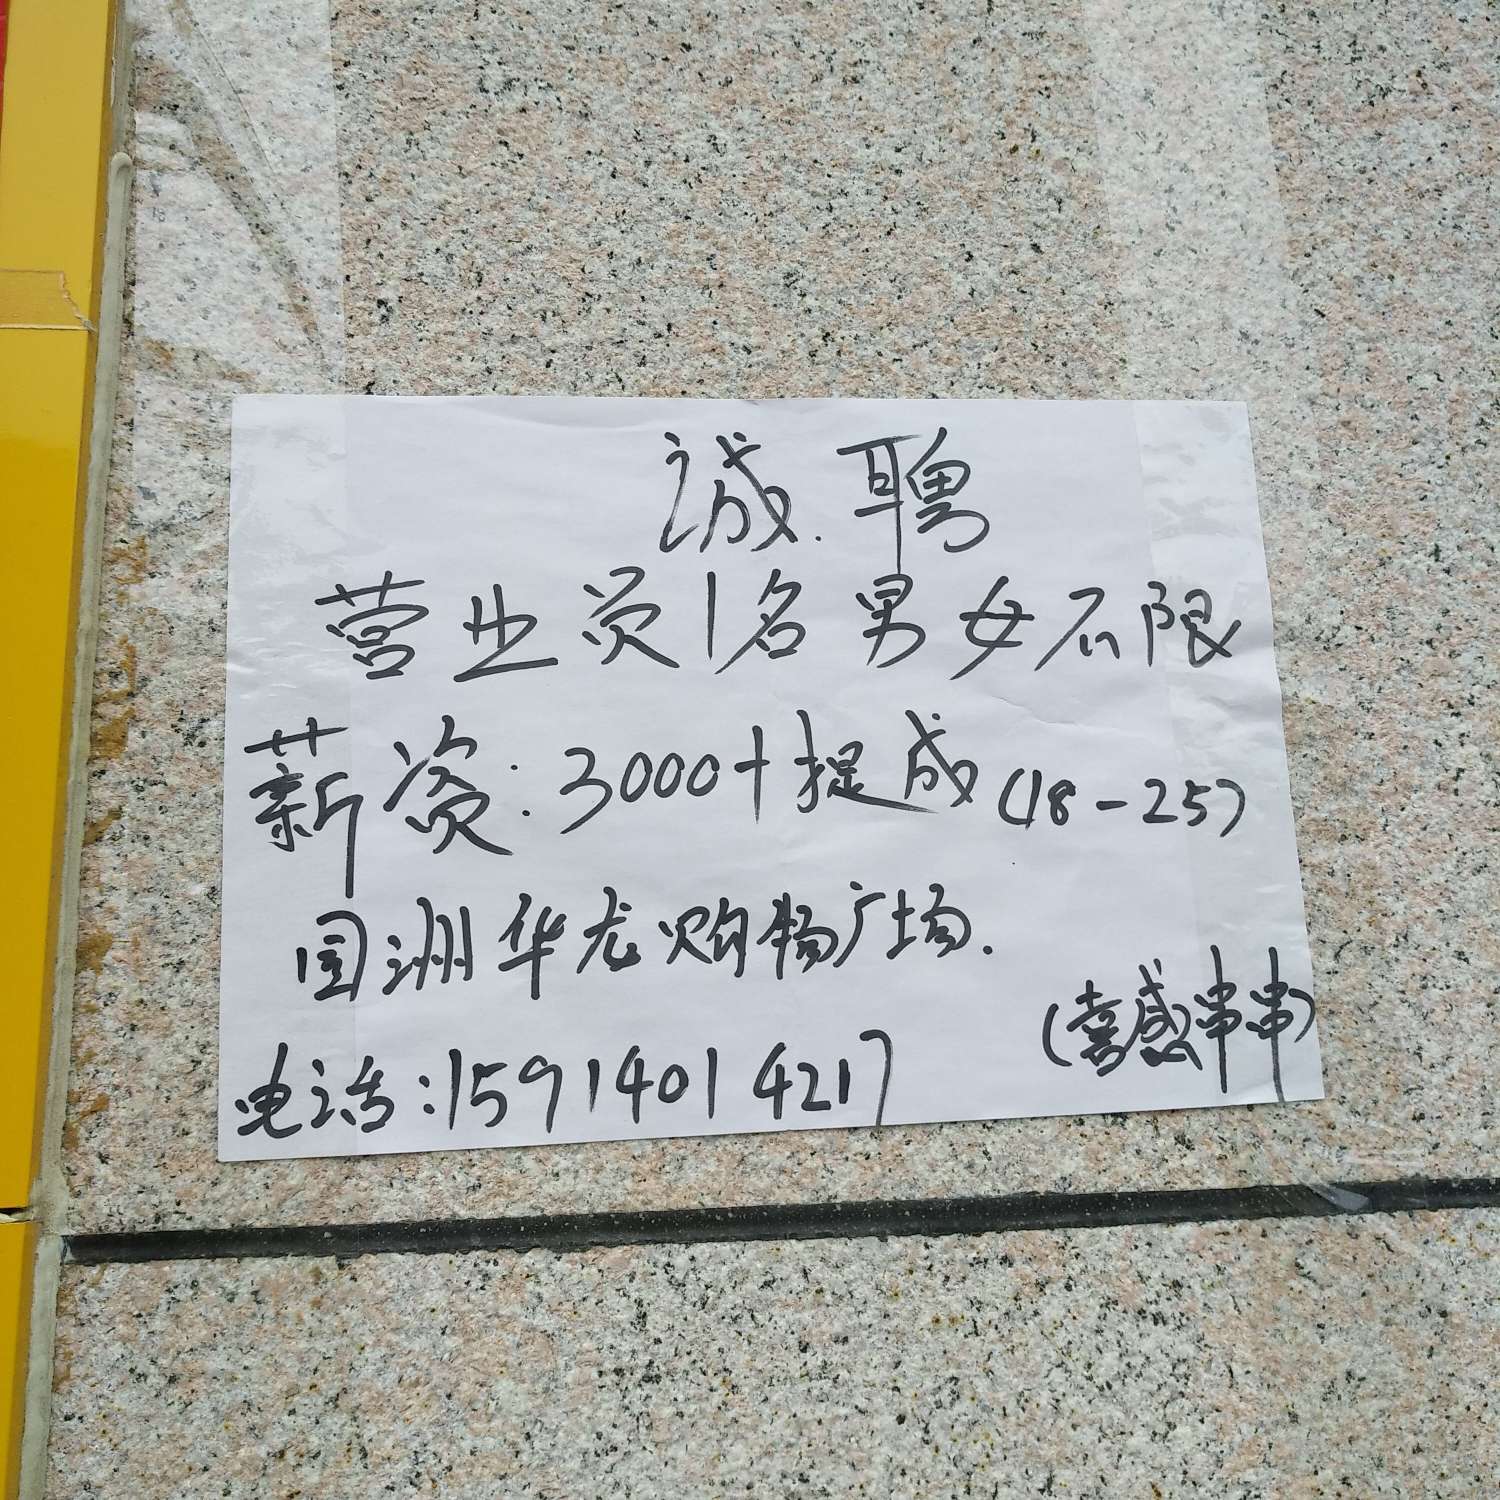 诚.聘
营业员1名男女不限
薪资:3000+提成(18-25)
国洲华龙购物广场.
(喜感串串)
电话:15914014217